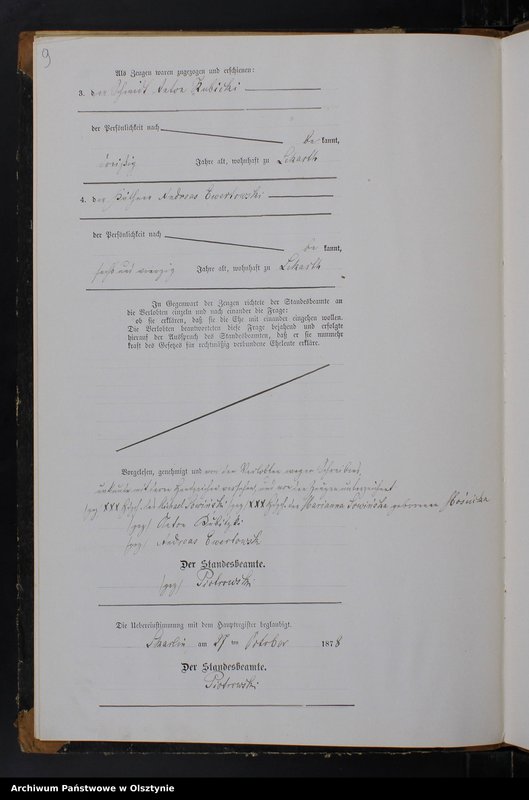 9
Als Zeugen waren zugezogen und erschienen:
3. der Schmidt Anton Kubicki
der Persönlichkeit nach
be kannt,
dreißig Jahre alt, wohnhaft zu
4. der Käthner Andreas Ewertowski
der Persönlichkeit nach
be kannt,
sechs und vierzig Jahre alt, wohnhaft zu
In Gegenwart der Zeugen richtete der Standesbeamte an
die Verlobten einzeln und nach einander die Frage:
ob sie erklären, daß sie die Ehe mit einander eingehen wollen.
Die Verlobten beantworteten diese Frage bejahend und erfolgte
hierauf der Ausspruch des Standesbeamten, daß er sie nunmehr
kraft des Gesetzes für rechtmäßig verbundene Eheleute erkläre.
Vorgelesen, genehmigt und von den Verlobten wegen Schreibens
unkunde mit ihren Handzeichen versehen und von den Zeugen unterzeichnet
(gez) XXX Hdzch. des (gez) XXX Hdzch. der Marianna geborenen
(gez) Anton Kubitzki
(gez) Andreas Ewertowski
Der Standesbeamte.
(gez) Piotrowski
Die Uebereinstimmung mit dem Hauptregister beglaubigt.
Skarlin am 27 ten October 1878
Der Standesbeamte.
Piotrowski
Archiwum Państwowe w Olsztynie